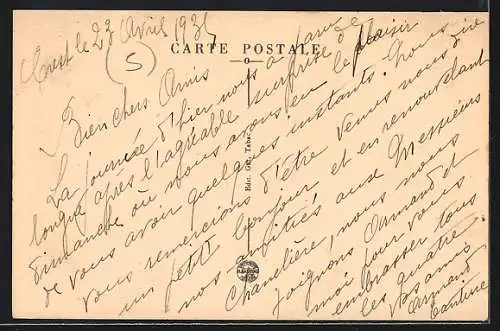 Crest le 23 Avril 193
(5)
CARTE POSTALE
Bien chers Amis
La journée d'hier nous a paru
longue après l'agréable surprise de
dimanche où nous avons eu le plaisir
de vous avoir quelques instants. Nous
vous remercions d'être venus nous dire
un petit bonjour et en renouvelant
nos amitiés aux Messieurs
Chancelière, nous nous
joignons Armand et
moi pour vous
embrasser tous
les quatre.
Vos amis
Armand
Edit. Gay, Tabac